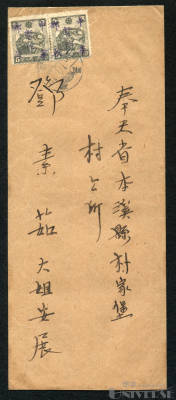 奉天省本溪縣孙家堡
村公所
鄧素茹大姐安展
UNIVERSE